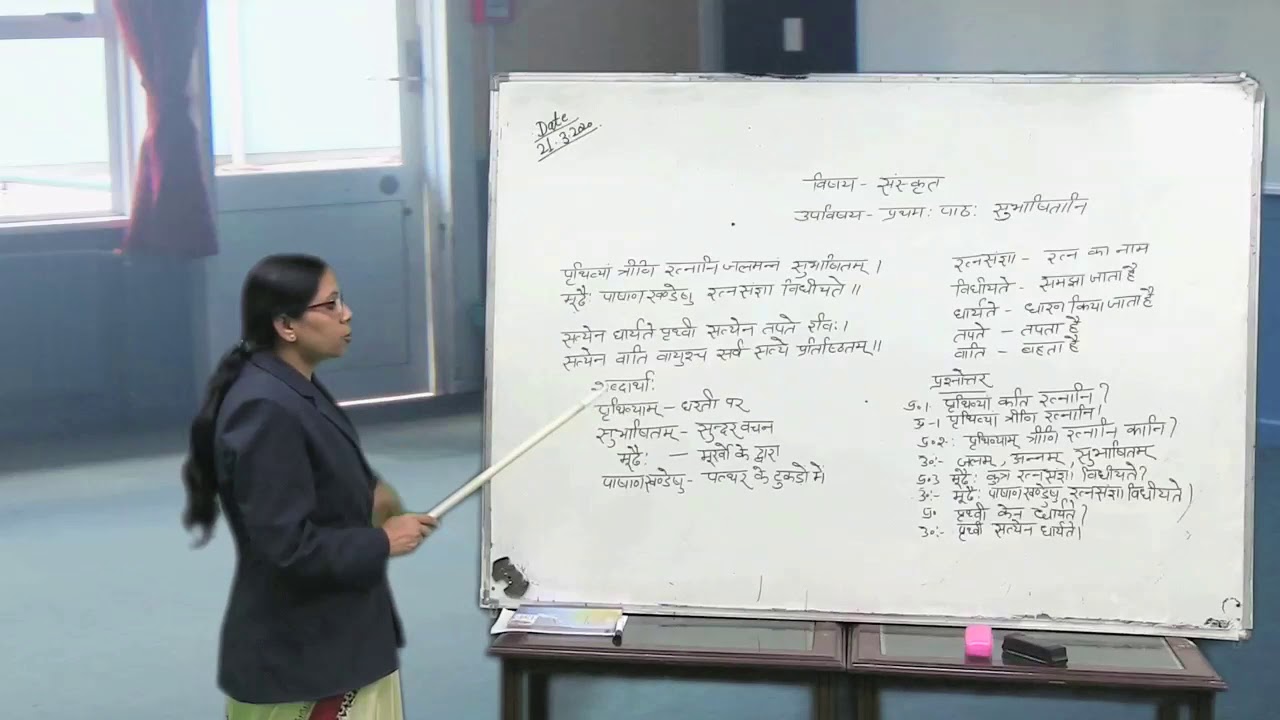 Date
21.3.2020
विषय - संस्कृत
उपविषय - प्रथमः पाठः सुभाषितानि
पृथिव्यां त्रीणि रत्नानि जलमन्नं सुभाषितम् ।
मूढैः पाषाणखण्डेषु रत्नसंज्ञा विधीयते ॥
सत्येन धार्यते पृथ्वी सत्येन तपते रविः।
सत्येन वाति वायुश्च सर्वं सत्ये प्रतिष्ठितम्॥
शब्दार्थाः
पृथिव्याम् - धरती पर
सुभाषितम् - सुन्दर वचन
मूढैः - मूर्खो के द्वारा
पाषाणखण्डेषु - पत्थर के टुकडो में
रत्नसंज्ञा - रत्न का नाम
विधीयते - समझा जाता है
धार्यते - धारण किया जाता है
तपते - तपता है
वाति - बहता है
प्रश्नोत्तर
प्र०1 पृथिव्यां कति रत्नानि?
प्र-1 पृथिव्यां त्रीणि रत्नानि।
प्र०२ः पृथिव्याम् त्रीणि रत्नानि कानि?
उ०:- जलम्, अन्नम्, सुभाषितम्
प्र०3 मूढैः कुत्र रत्नसंज्ञा विधीयते?
उ०:- मूढैः पाषाणखण्डेषु रत्नसंज्ञा विधीयते)
प्र० पृथ्वी केन धार्यते?
उ०:- पृथ्वी सत्येन धार्यते।